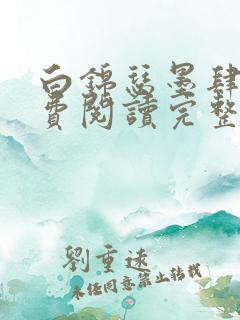 白錦瑟墨肆
費閱讀完整
劉重遠
未經同意禁止轉載